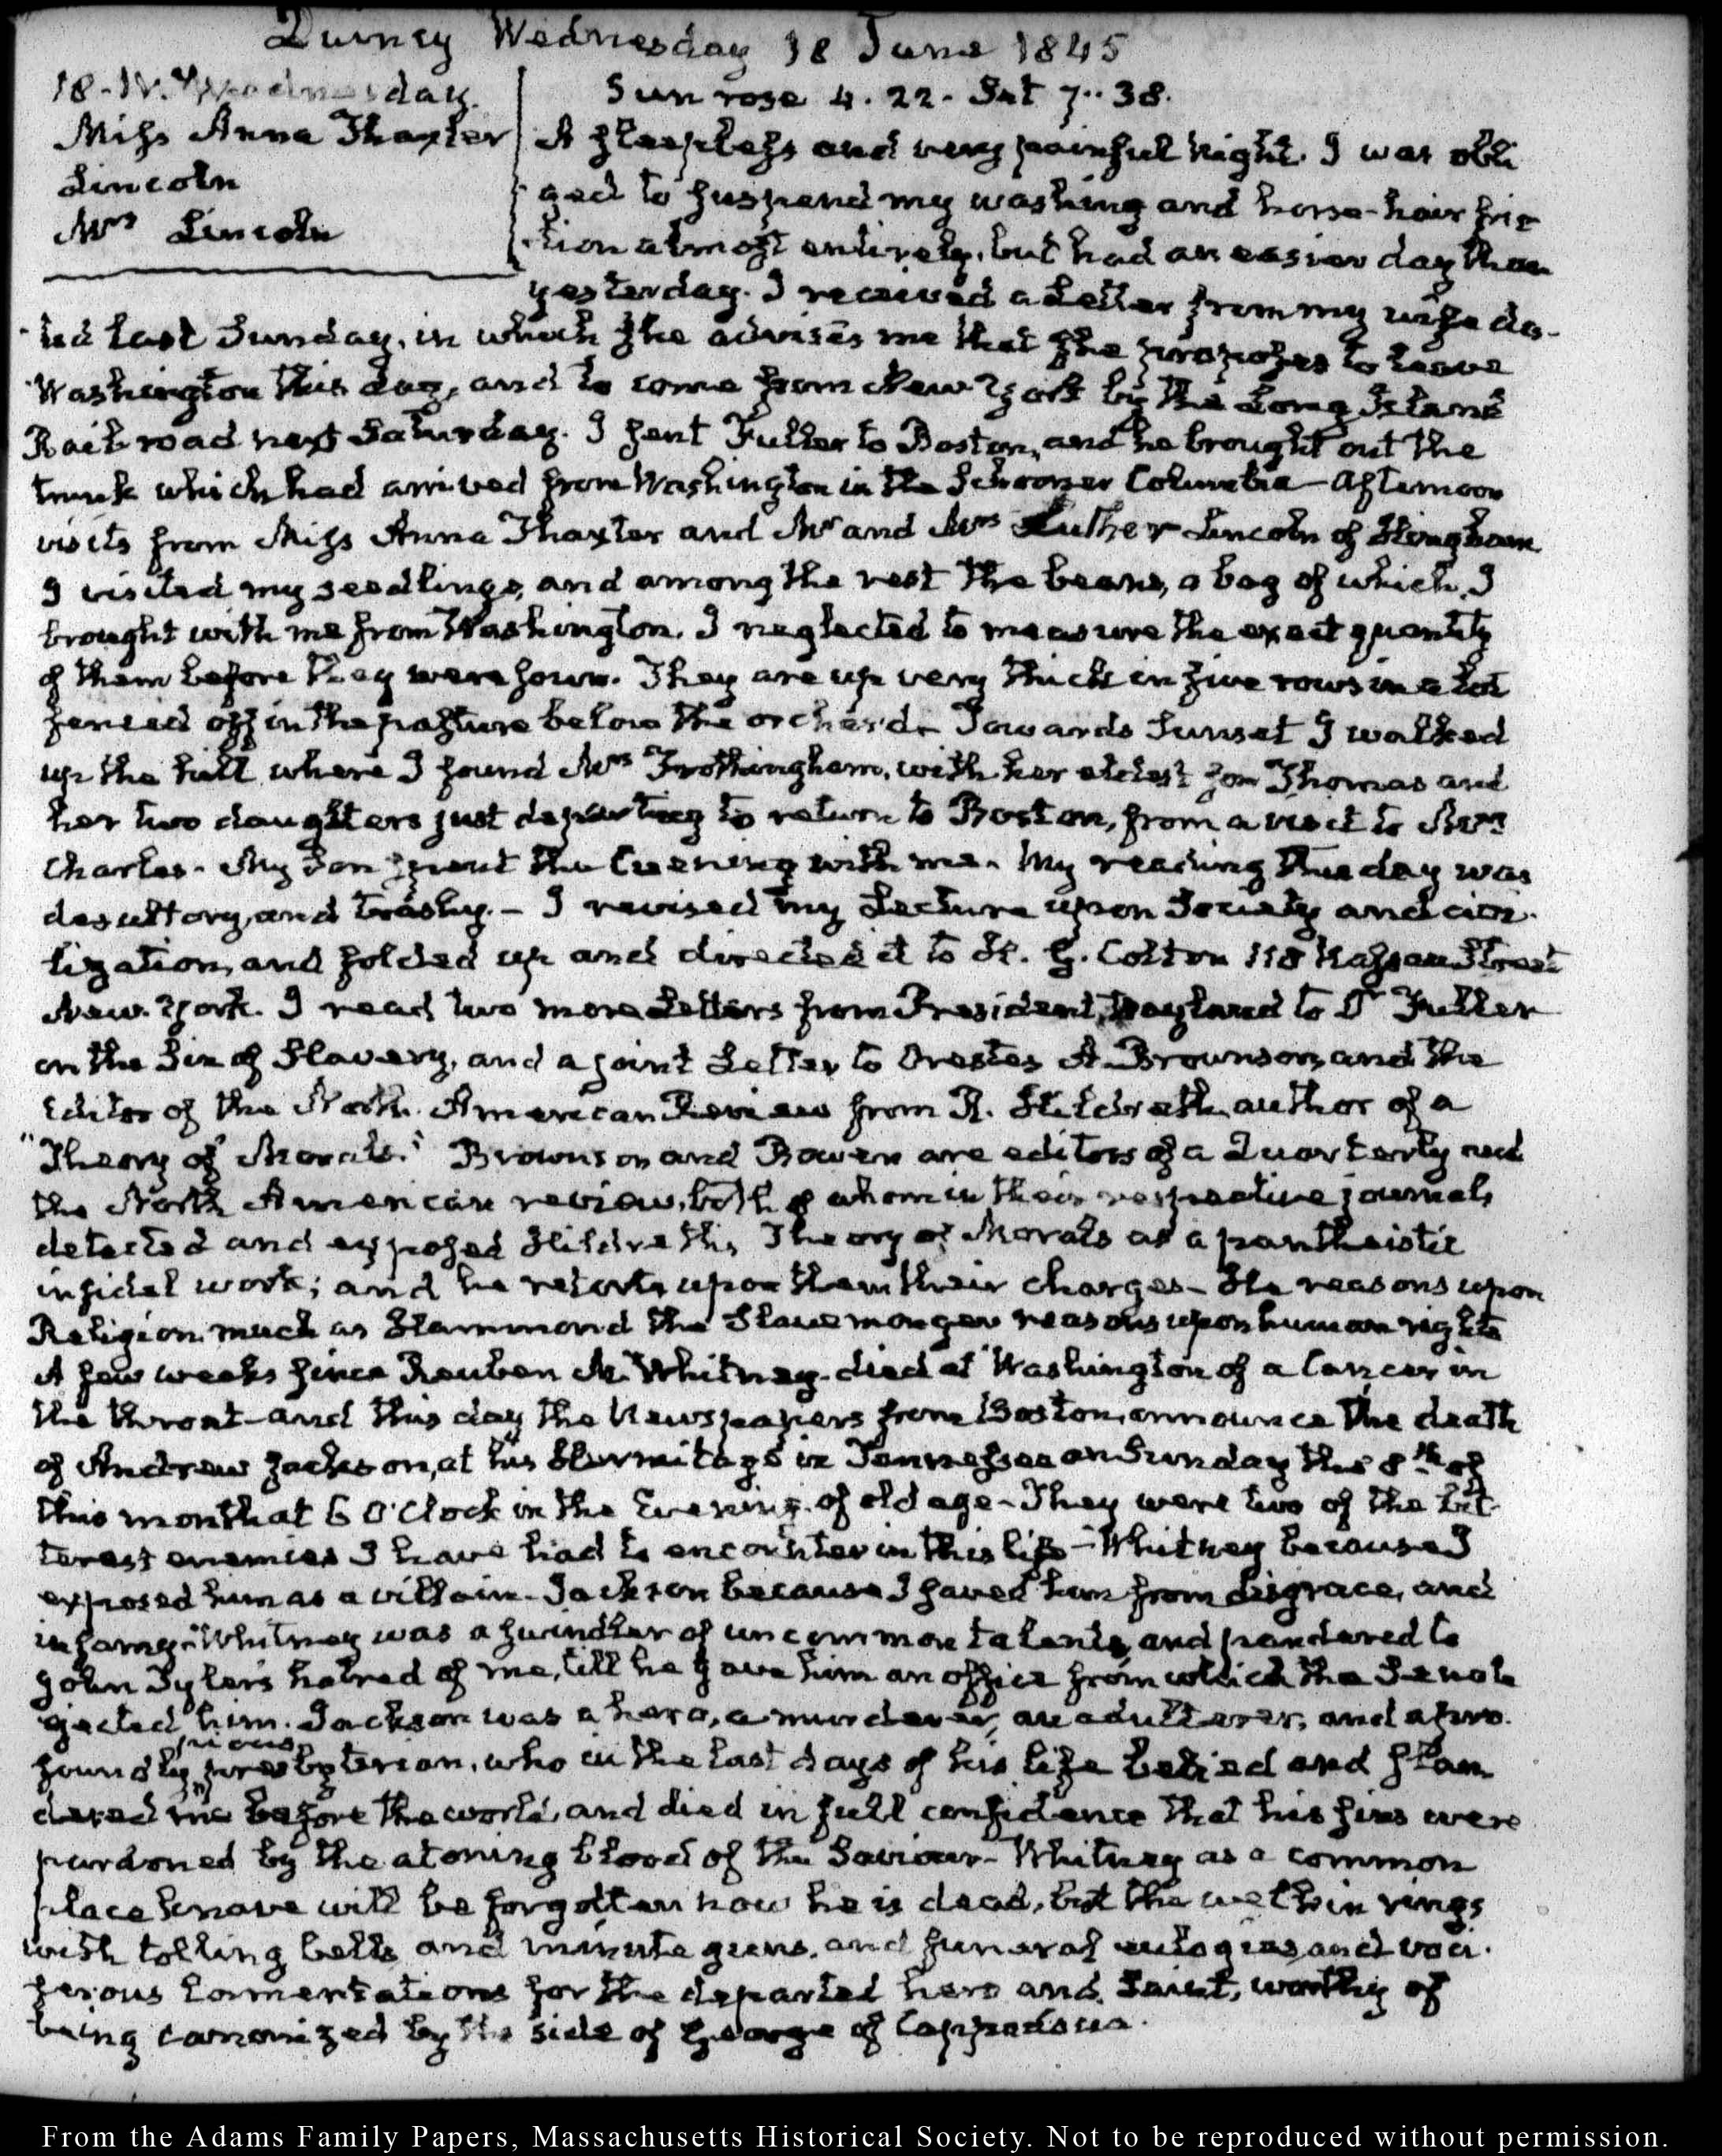 Quincy Wednesday 18 June 1845
18. IV. Wednesday.
Miss Anna Thaxter
Lincoln
Mrs Lincoln
Sun rose 4. 22. Set 7.. 38.
A sleepless and very painful night. I was obli
ged to suspend my washing and horse-hair fric
tion almost entirely, but had an easier day than
yesterday. I received a Letter from my wife da-
ted last Sunday, in which she advises me that she proposes to leave
Washington this day, and to come from New York by the Long Island
Rail road next Saturday. I sent Fuller to Boston, and he brought out the
trunk which had arrived from Washington in the Schooner Columbia - Afternoon
visits from Miss Anna Thaxter and Mr and Mrs Luther Lincoln of Hingham
I visited my seedlings, and among the rest the beans, a bag of which, I
brought with me from Washington. I neglected to measure the exact quantity
of them before they were sown. They are up very thick in five rows in a lot
fenced off in the pasture below the orchard - Towards Sunset I walked
up the hill where I found Mrs Frothingham, with her eldest son Thomas and
her two daughters just departing to return to Boston, from a visit to Mrs
Charles. My Son spent the Evening with me. My reading this day was
desultory, and trashy. - I revised my Lecture upon Society and civi-
lization, and folded up and directed it to G. Colton 118 Nassau Street
New-York. I read two more Letters from President Wayland to Dr Fuller
on the Sin of Slavery, and a joint Letter to Orestes A. Brownson, and the
Editor of the North American Review from R. Hildreth, author of a
"Theory of Morals." Brownson and Bowen are editors of a Quarterly and
the North American review, both of whom in their respective journals
detected and exposed Hildreth's Theory of Morals as a pantheistic
infidel work; and he retorts upon them their charges - He reasons upon
Religion much as Hammond the Slave monger reasons upon human rights
A few weeks since Reuben M. Whitney died at Washington of a Cancer in
the throat - and this day the Newspapers from Boston, announce the death
of Andrew Jackson, at his Hermitage in Tennessee on Sunday the 8th of
this month at 6 O'Clock in the Evening, of old age - They were two of the bit-
terest enemies I have had to encounter in this life - Whitney because I
exposed him as a villain - Jackson because I saved him from disgrace, and
infamy - Whitney was a swindler of uncommon talents, and pandered to
John Tyler's hatred of me, till he gave him an office from which the Senate
ejected him. Jackson was a hero, a murderer, an adulterer, and a pro-
pious
foundly presbyterian, who in the last days of his life belied and slan
dered me before the world, and died in full confidence that his sins were
pardoned by the atoning blood of the Saviour - Whitney as a common
place knave will be forgotten now he is dead, but the welkin rings
with tolling bells and minute guns, and funeral eulogies, and voci-
ferous lamentations for the departed hero and Saint, worthy of
being canonized by the side of George of Cappadocia.
From the Adams Family Papers, Massachusetts Historical Society. Not to be reproduced without permission.